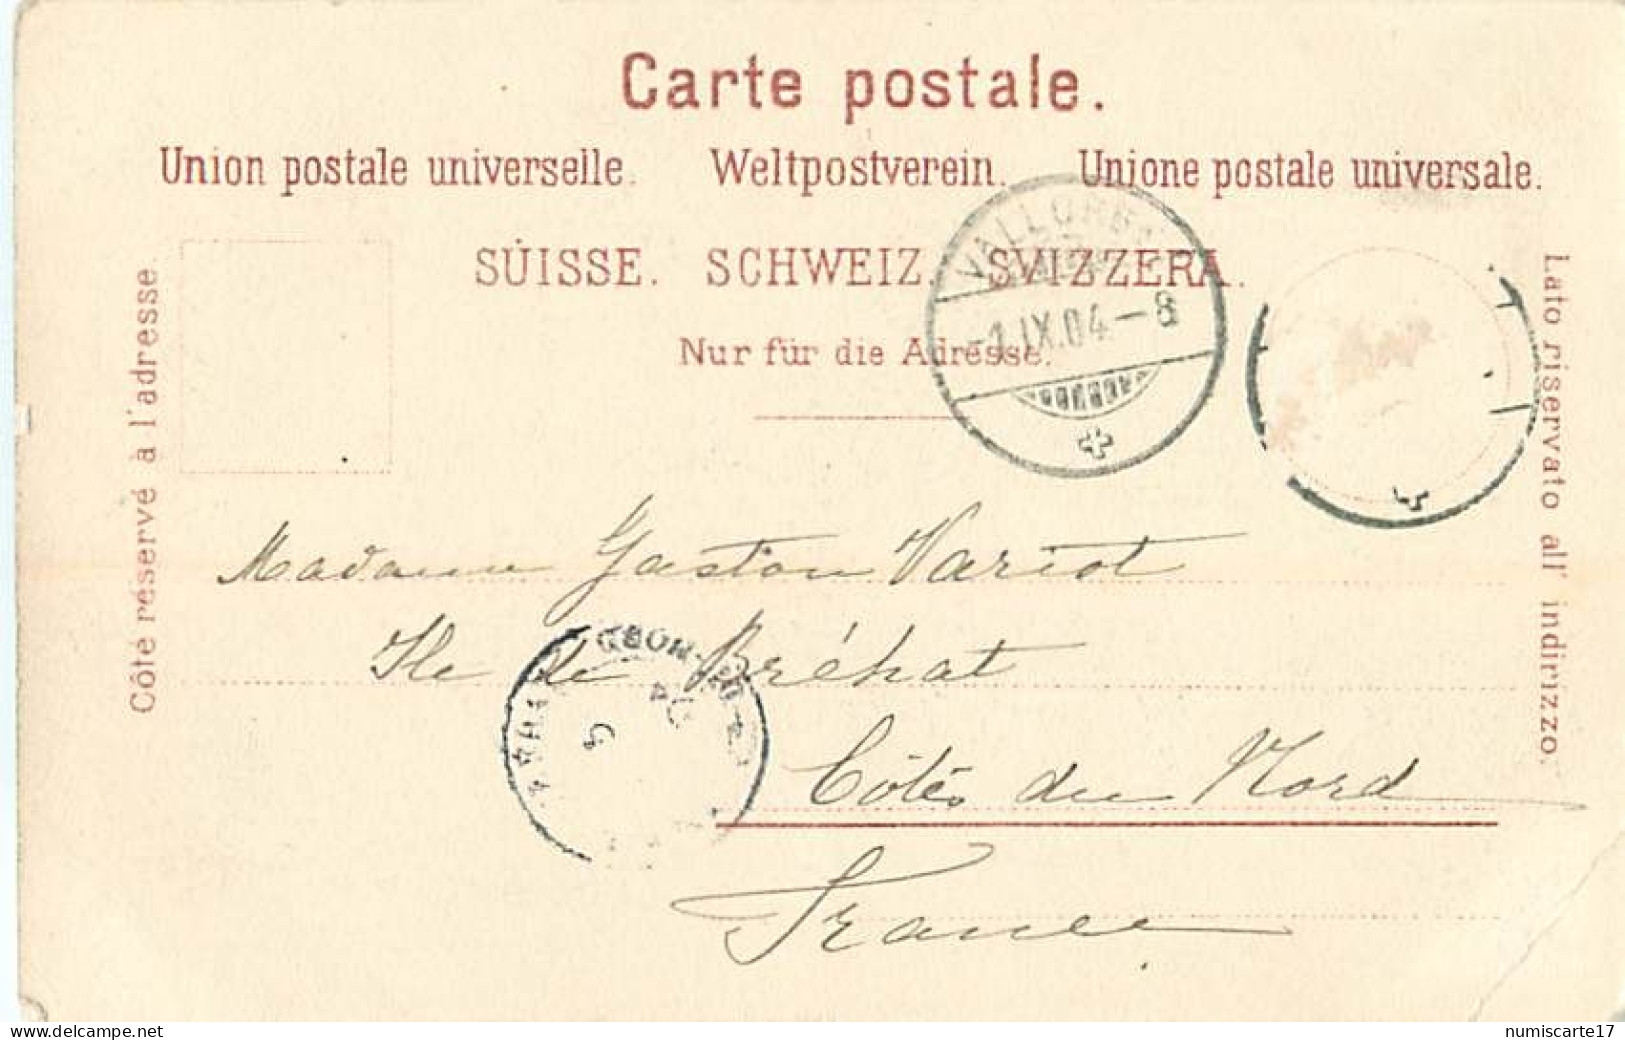 Carte postale.
Union postale universelle. Weltpostverein. Unione postale universale.
SUISSE. SCHWEIZ. SVIZZERA.
Nur für die Adresse.
Côté réservé à l'adresse.
Lato riservato all' indirizzo.
VALLORBE
-1.IX.04-8
Madame Gaston Variot
Ile de Bréhat
Côtes du Nord
France
www.delcampe.net
numiscarte17